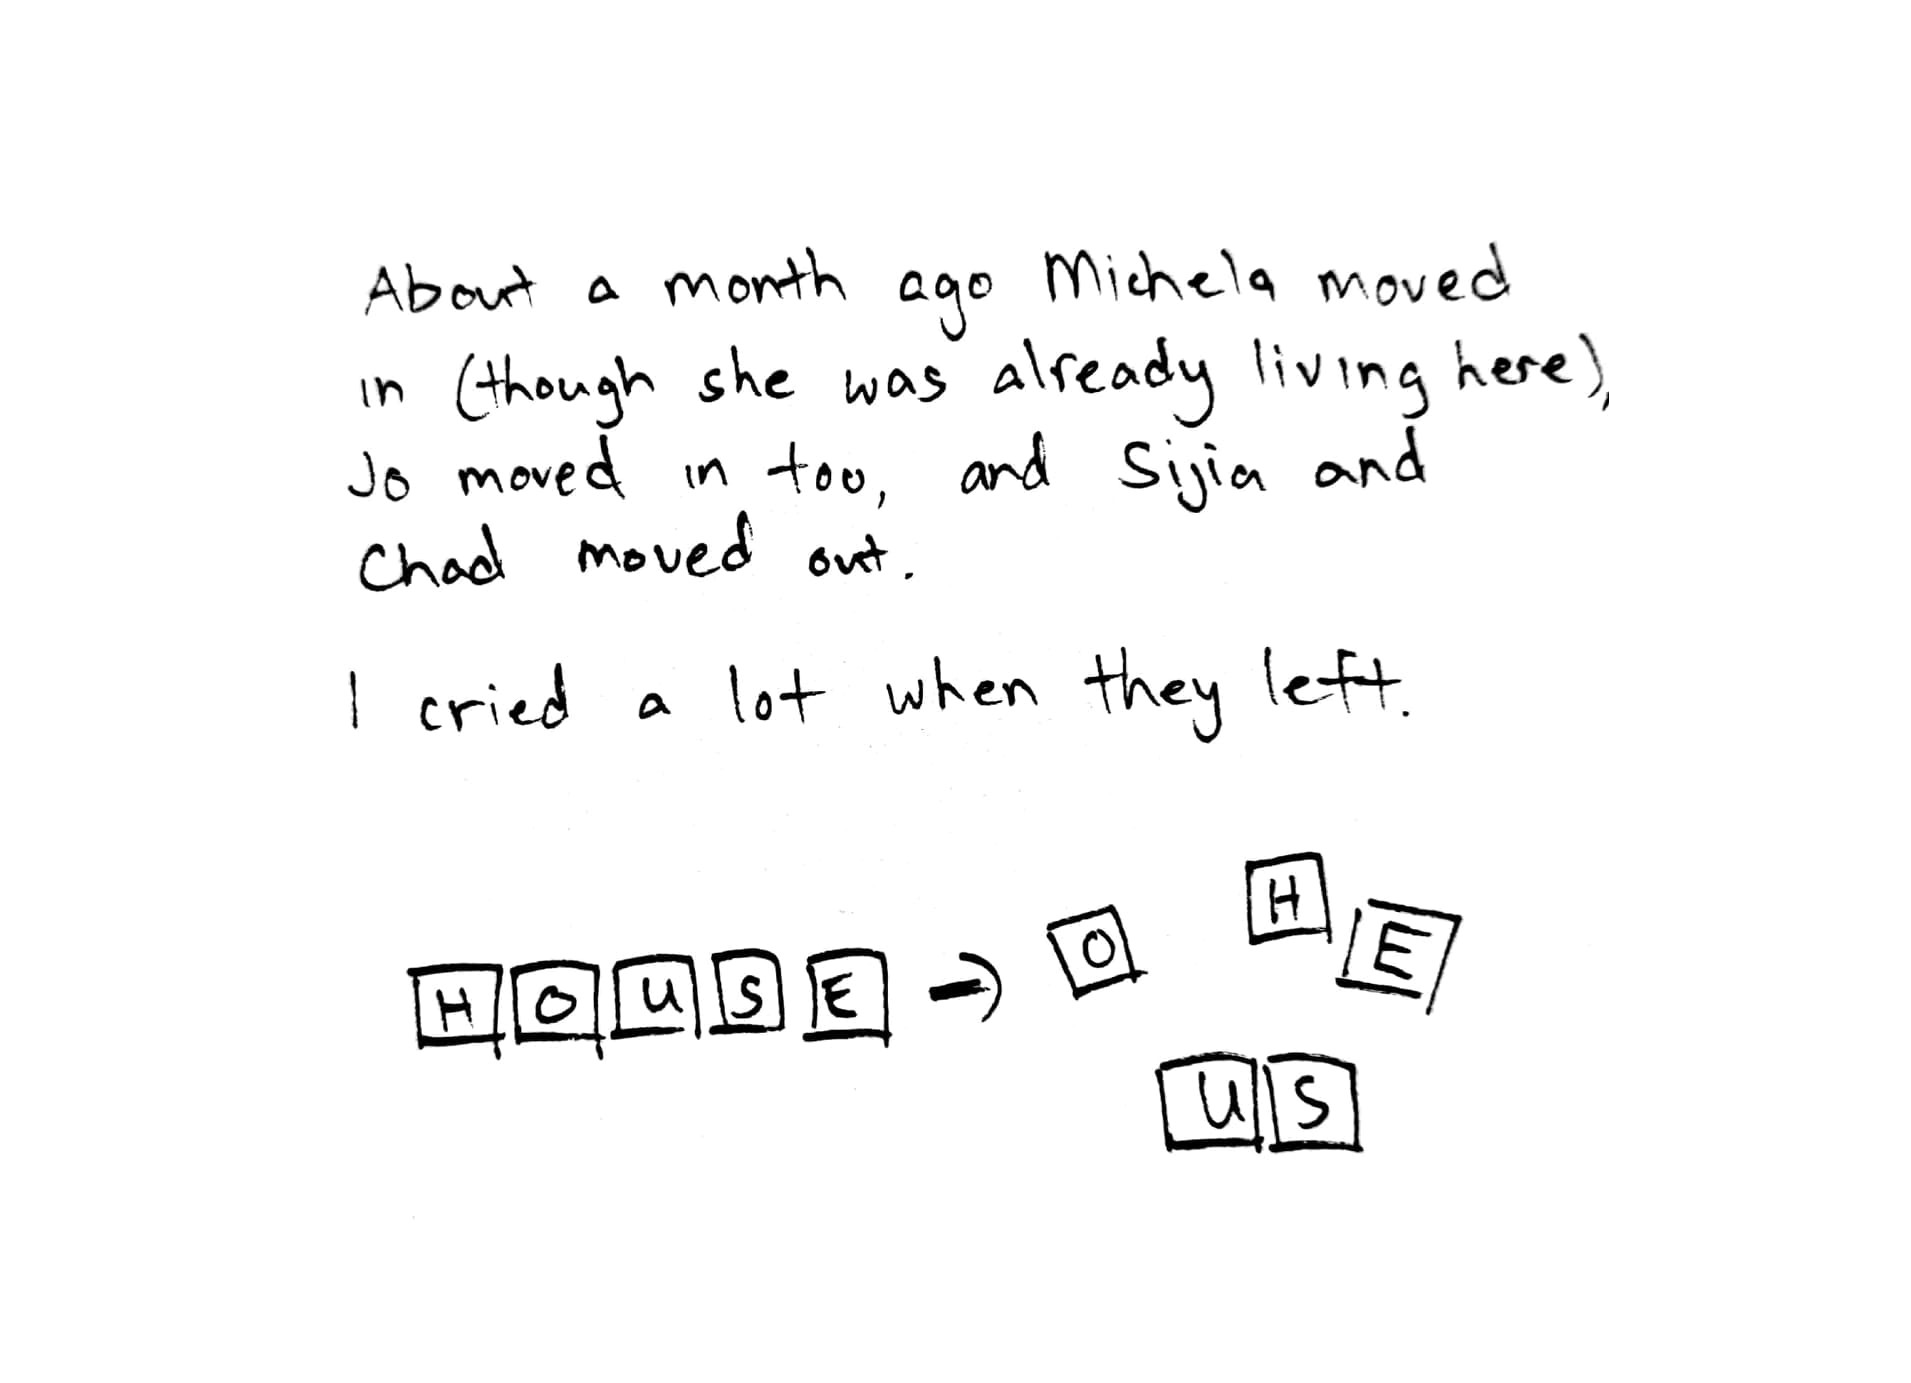 About a month ago Michela moved
in (though she was already living here),
Jo moved in too, and Sijia and
Chad moved out.
I cried a lot when they left.
HOUSE → O HE
US